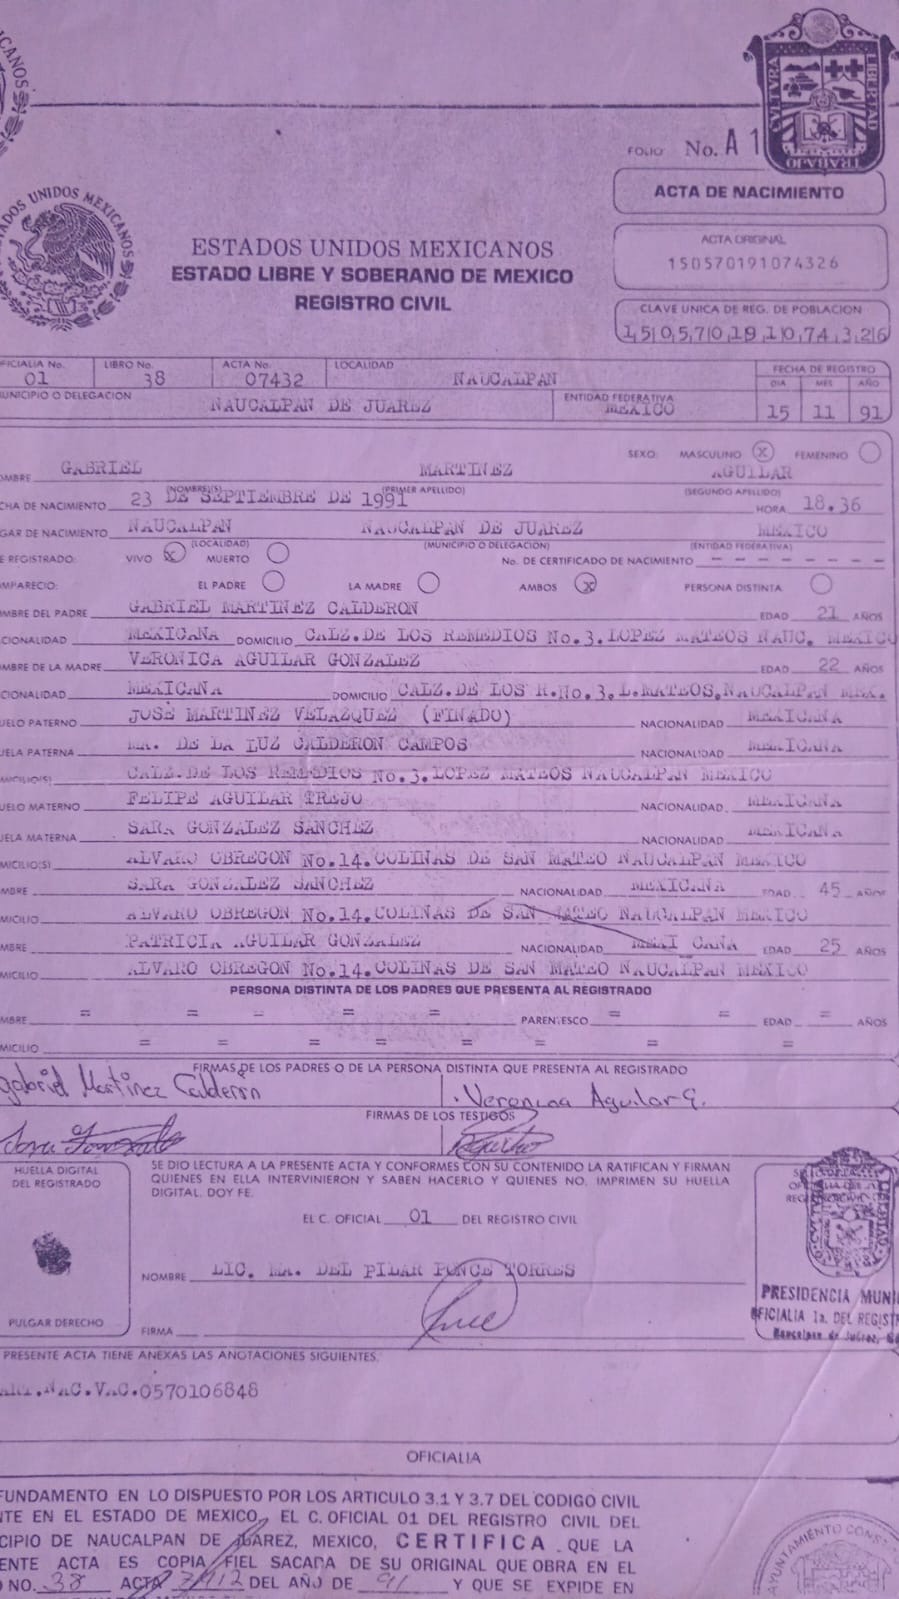 FOLIO No. A 1
LIBERTAD
CULTURA
TRABAJO
ACTA DE NACIMIENTO
ACTA ORIGINAL
150570191074326
CLAVE UNICA DE REG. DE POBLACION
150570191074326
ESTADOS UNIDOS MEXICANOS
ESTADO LIBRE Y SOBERANO DE MEXICO
REGISTRO CIVIL
FICIALIA No. LIBRO No. ACTA No. LOCALIDAD FECHA DE REGISTRO
01 38 07432 NAUCALPAN DIA MES AÑO
UNICIPIO O DELEGACION NAUCALPAN DE JUAREZ ENTIDAD FEDERATIVA MEXICO 15 11 91
SEXO: MASCULINO X FEMENINO
OMBRE GABRIEL MARTINEZ AGUILAR
(NOMBRE(S)) (PRIMER APELLIDO) (SEGUNDO APELLIDO)
CHA DE NACIMIENTO 23 DE SEPTIEMBRE DE 1991 HORA 18.36
GAR DE NACIMIENTO NAUCALPAN NAUCALPAN DE JUAREZ MEXICO
(LOCALIDAD) (MUNICIPIO O DELEGACION) (ENTIDAD FEDERATIVA)
E REGISTRADO: VIVO X MUERTO No. DE CERTIFICADO DE NACIMIENTO
OMPARECIO: EL PADRE LA MADRE AMBOS X PERSONA DISTINTA
MBRE DEL PADRE GABRIEL MARTINEZ CALDERON EDAD 21 AÑOS
CIONALIDAD MEXICANA DOMICILIO CALZ.DE LOS REMEDIOS No.3.LOPEZ MATEOS NAUC. MEXICO
MBRE DE LA MADRE VERONICA AGUILAR GONZALEZ EDAD 22 AÑOS
CIONALIDAD MEXICANA DOMICILIO CALZ.DE LOS R.No.3,L.MATEOS,NAUCALPAN MEX.
UELO PATERNO JOSE MARTINEZ VELAZQUEZ (FINADO) NACIONALIDAD MEXICANA
UELA PATERNA MA. DE LA LUZ CALDERON CAMPOS NACIONALIDAD MEXICANA
MICILIO(S) CALZ.DE LOS REMEDIOS No.3.LOPEZ MATEOS NAUCALPAN MEXICO
UELO MATERNO FELIPE AGUILAR TREJO NACIONALIDAD MEXICANA
UELA MATERNA SARA GONZALEZ SANCHEZ NACIONALIDAD MEXICANA
MICILIO(S) ALVARO OBREGON No.14.COLINAS DE SAN MATEO NAUCALPAN MEXICO
MBRE SARA GONZALEZ SANCHEZ NACIONALIDAD MEXICANA EDAD 45 AÑOS
MICILIO ALVARO OBREGON No.14.COLINAS DE SAN MATEO NAUCALPAN MEXICO
MBRE PATRICIA AGUILAR GONZALEZ NACIONALIDAD MEXICANA EDAD 25 AÑOS
MICILIO ALVARO OBREGON No.14.COLINAS DE SAN MATEO NAUCALPAN MEXICO
PERSONA DISTINTA DE LOS PADRES QUE PRESENTA AL REGISTRADO
MBRE = = = = = PARENTESCO = = EDAD = AÑOS
MICILIO = = = = = = = =
FIRMAS DE LOS PADRES O DE LA PERSONA DISTINTA QUE PRESENTA AL REGISTRADO
gabriel Martinez Calderón Veronica Aguilar G.
FIRMAS DE LOS TESTIGOS
HUELLA DIGITAL
DEL REGISTRADO
SE DIO LECTURA A LA PRESENTE ACTA Y CONFORMES CON SU CONTENIDO LA RATIFICAN Y FIRMAN
QUIENES EN ELLA INTERVINIERON Y SABEN HACERLO Y QUIENES NO. IMPRIMEN SU HUELLA
DIGITAL. DOY FE.
EL C. OFICIAL 01 DEL REGISTRO CIVIL
NOMBRE LIC. MA. DEL PILAR PONCE TORRES
PULGAR DERECHO
FIRMA
PRESIDENCIA MUNI
FICIALIA 1a. DEL REGIST
Naucalpan de Juárez,
PRESENTE ACTA TIENE ANEXAS LAS ANOTACIONES SIGUIENTES:
NAC.VAC.0570106848
OFICIALIA
FUNDAMENTO EN LO DISPUESTO POR LOS ARTICULO 3.1 Y 3.7 DEL CODIGO CIVIL
TE EN EL ESTADO DE MEXICO, EL C. OFICIAL 01 DEL REGISTRO CIVIL DEL
CIPIO DE NAUCALPAN DE JUAREZ, MEXICO, CERTIFICA QUE LA
ENTE ACTA ES COPIA FIEL SACADA DE SU ORIGINAL QUE OBRA EN EL
NO. 38 ACTA DEL AÑO DE 91 Y QUE SE EXPIDE EN
AYUNTAMIENTO CONS